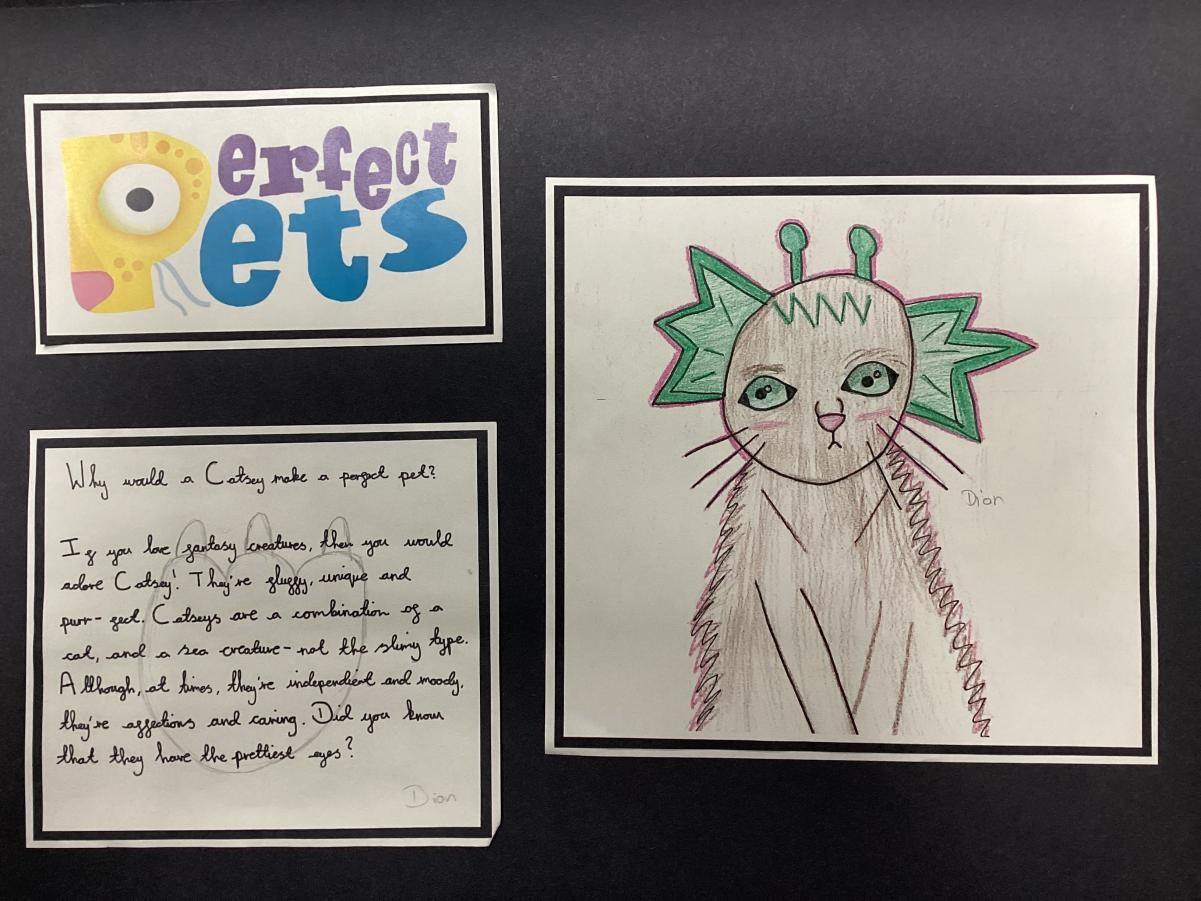 Perfect
Pets
Why would a Catsey make a perfect pet?
If you love fantasy creatures, then you would
adore Catsey! They're fluffy, unique and
purr-fect. Catseys are a combination of a
cat, and a sea creature - not the slimy type.
Although, at times, they're independent and moody,
they're affections and caring. Did you know
that they have the prettiest eyes?
Dion
Dion